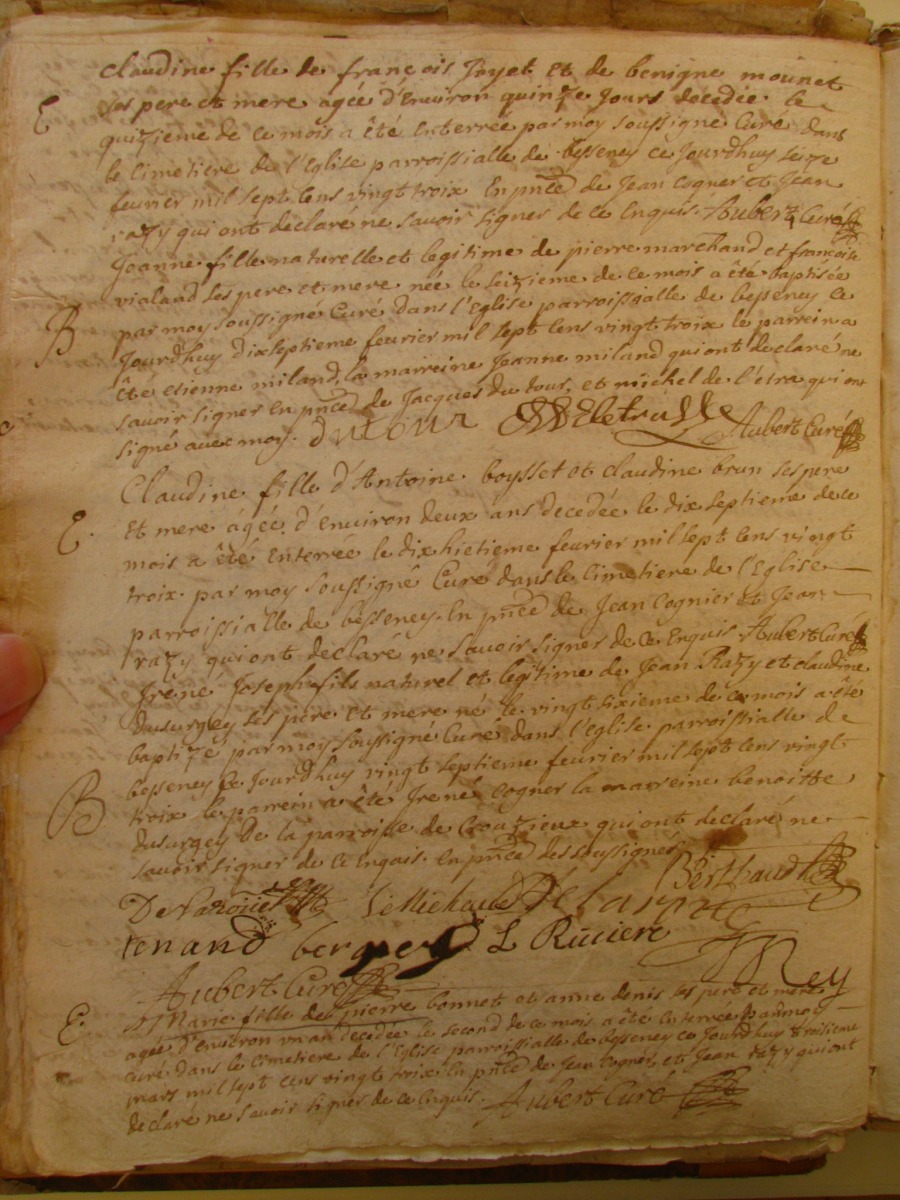 Claudine fille de françois Joyet et de benigne mounet
E ses pere et mere agée d'Environ quinze Jours decedée le
quizieme de ce mois a êté Enterrée par moy soussigné Curé dans
le Cimetiere de l'Eglise parroissialle de besseney ce Jourdhuy seize
fevrier mil sept Cens vingt troix En pnce de Jean Cogner et Jean
razy qui ont declaré ne savoir signer de ce Enquis. Aubert Curé
Jeanne fille naturelle et legitime de pierre marchand et françoise
vialand ses pere et mere née le seizieme de ce mois a êté baptisée
B par moy soussigné Curé dans l'Eglise parroissialle de besseney ce
Jourdhuy dixseptieme fevrier mil sept Cens vingt troix le parrein a
êté etienne miland, la marreine Jeanne miland qui ont declaré ne
savoir signer En pnce de Jacques du tour, et michel de l'etra qui ont
signé avec moy. dutour Aubert Curé
Claudine fille d'Antoine boysset et claudine brun ses pere
E. et mere âgée d'Environ deux ans decedée le dix septieme de ce
mois a êté Enterrée le dixhietieme fevrier mil sept Cens vingt
troix par moy soussigné Curé dans le Cimetiere de l'Eglise
parroissialle de besseney En pnce de Jean Cognier et Jean
razy qui ont declaré ne savoir signer de ce Enquis. Aubert Curé
Irené Joseph fils naturel et legitime de Jean Razy et claudine
dusurgey ses pere et mere né le vingt sixieme de ce mois a été
baptizé par moy soussigné Curé dans l'Eglise parroissialle de
besseney ce Jourdhuy vingt septieme fevrier mil sept Cens vingt
B troix le parrein a êté Irené Cogner la marreine benoitte
dusurgey De la parroisse de Crouzieux qui ont declaré ne
savoir signer de ce Enquis. En pnce des soussignés
Berthaud
tenand berger L Riviere
Rey
Aubert Curé
E. Marie fille de pierre bonnet et anne denis ses pere et mere
agée d'Environ un an decedée le second de ce mois a êté Enterrée par moy
Curé dans le Cimetiere de l'Eglise parroissialle de besseney ce Jourdhuy troisieme
mars mil sept cens vingt troix En pnce de Jean Cogner, et Jean razy qui ont
declaré ne savoir signer de ce Enquis. Aubert Curé